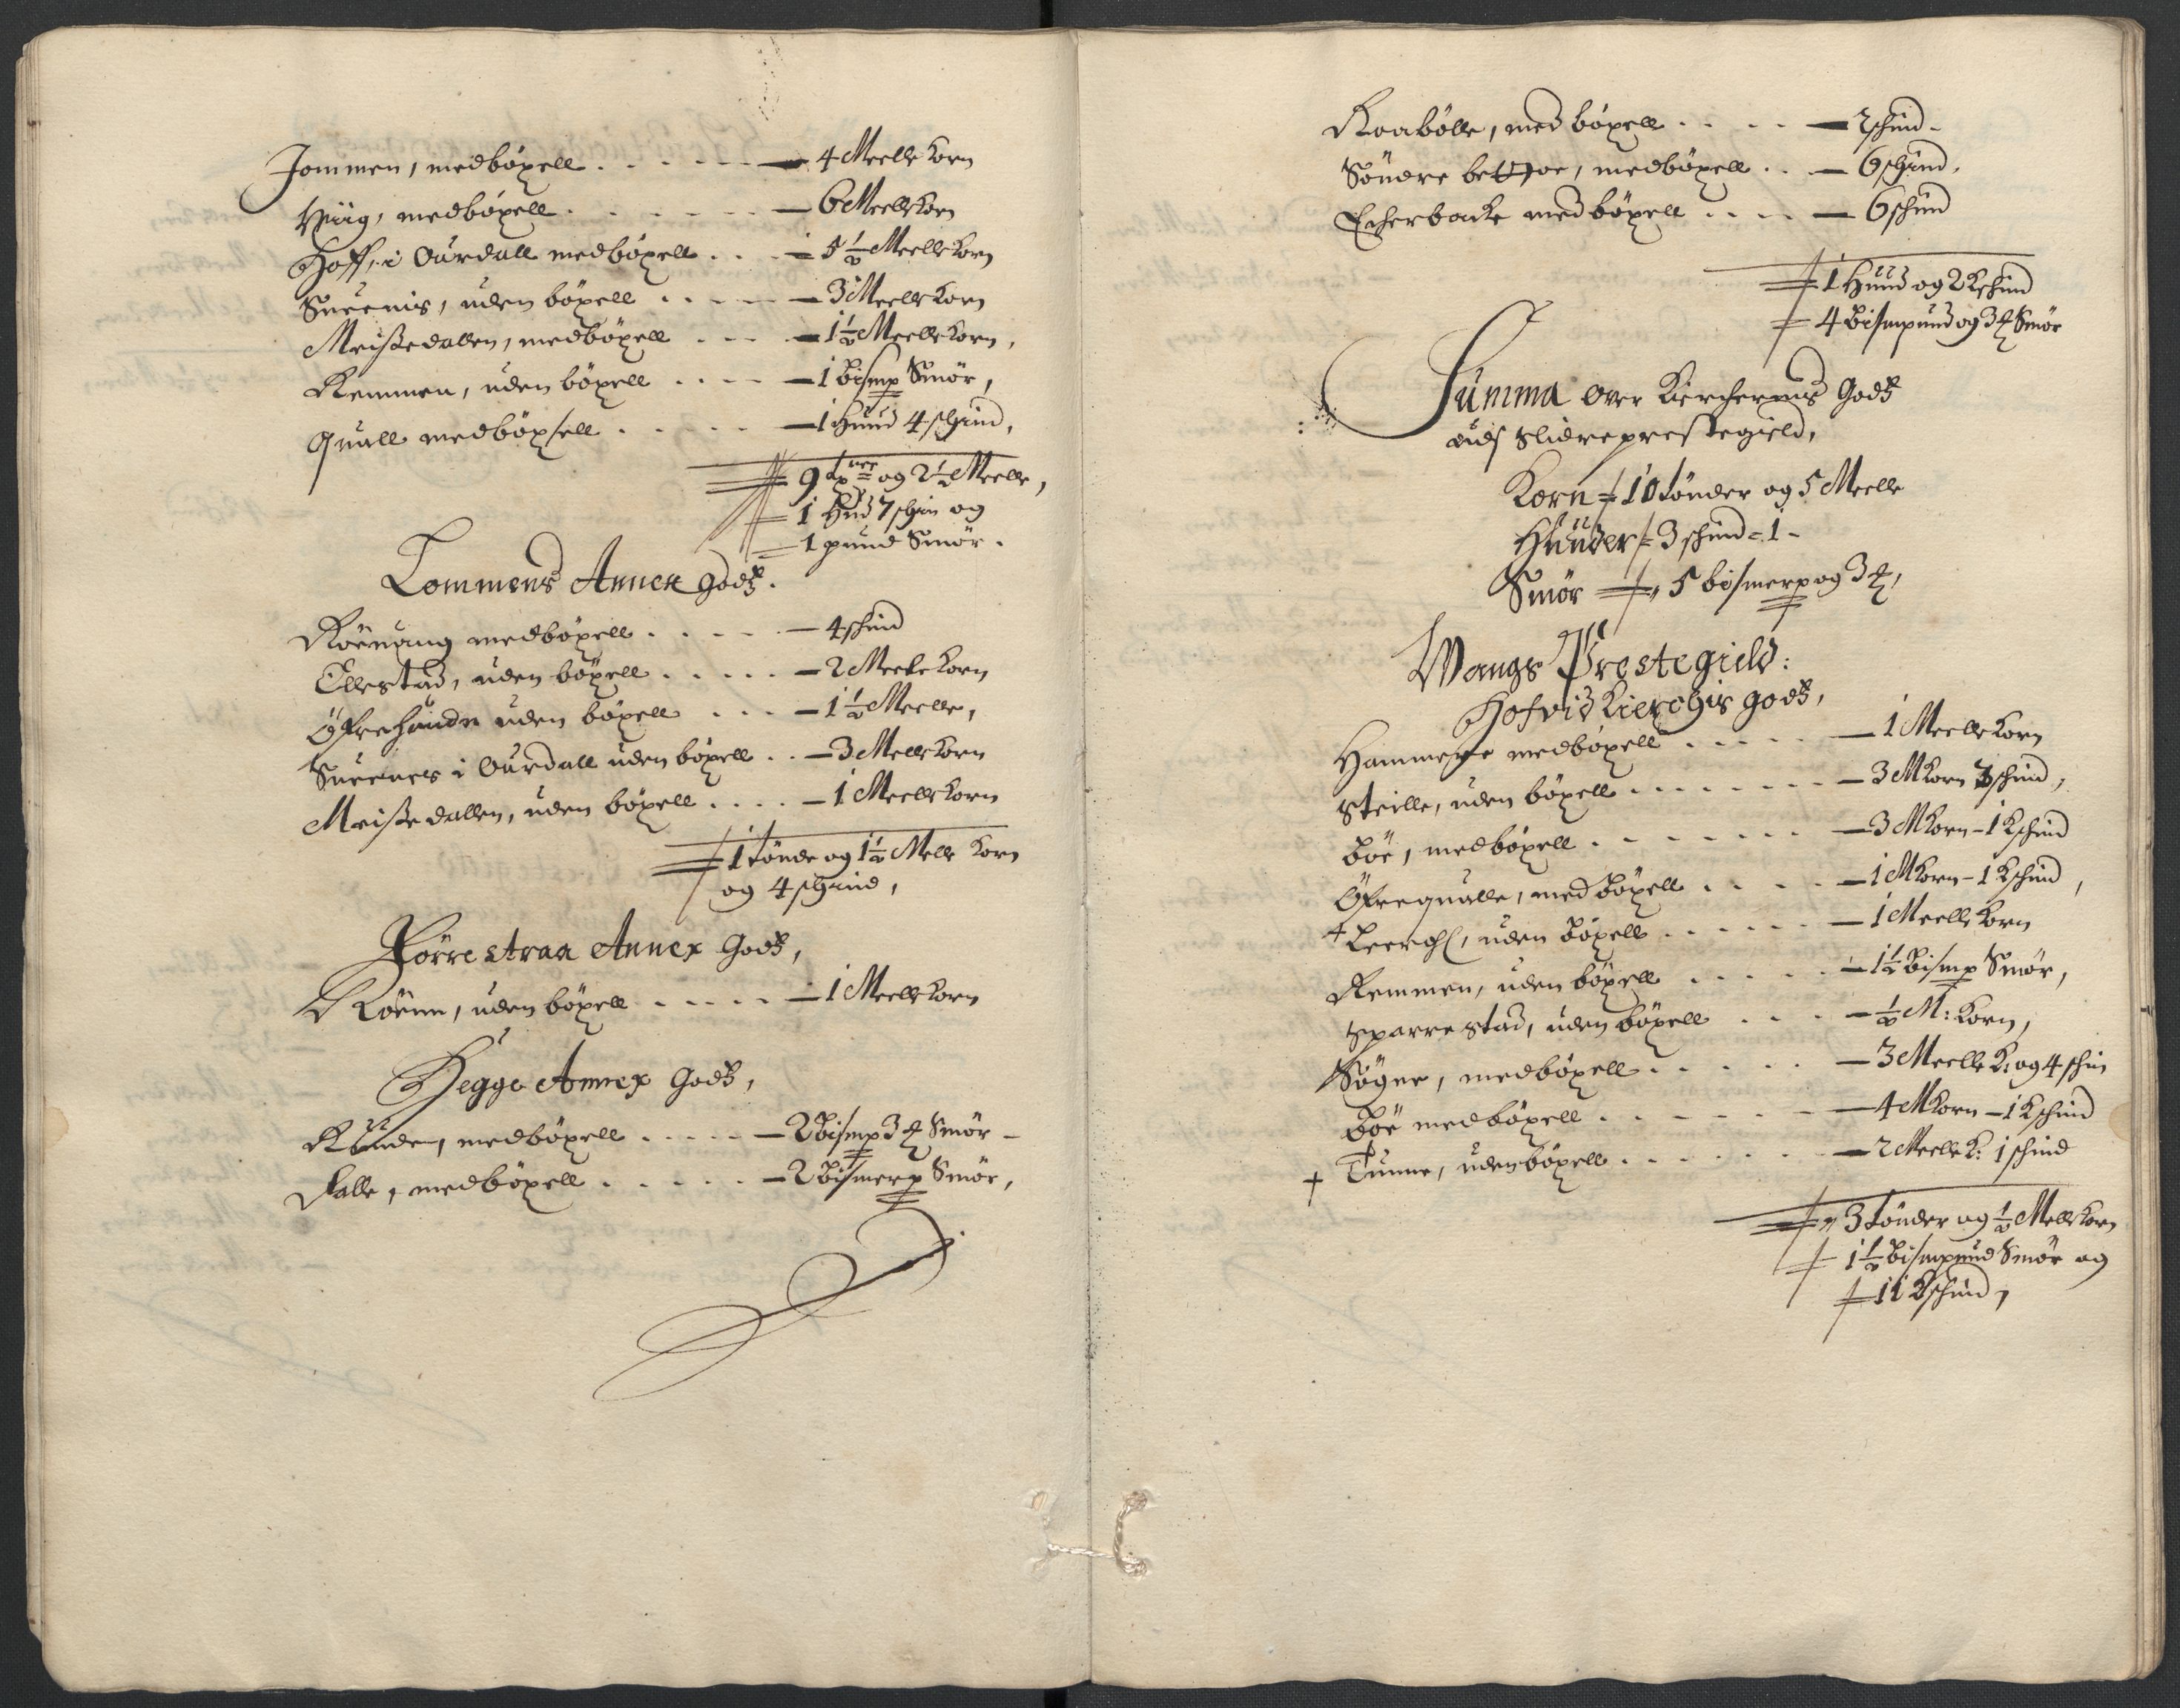 Jommen, med böxell . . . . . — 4 Meelle Korn
Viig, med böxell . . . . . . — 6 Meelle Korn
Hoff, i Ourdall med böxell . . . — 5 1/2 Meelle Korn
Sueenis, uden böxell . . . . — 3 Meelle Korn
Meissedallen, med böxell . . . — 1 1/2 Meelle Korn,
Remmen, uden böxell . . . . — 1 bismp Smör,
Quall med böxsell . . . . . — 1 Huud 4 schind,
9 tr og 2 1/2 Meelle,
1 Hud 7 schin og
1 pund Smör.
Lommens Annex godtz.
Röeuang med böxell . . . . . — 4 schind
Ellestad, uden böxell . . . . . — 2 Meele Korn
Öfrehunde uden böxell . . . — 1 1/2 Meelle,
Sueenes i Ourdall uden böxell . . — 3 Melle Korn
Meissedallen, uden böxell . . . . — 1 Meelle Korn
1 tönde og 1 1/2 Melle Korn
og 4 schind,
Förre straa Annex Godtz,
Löenn, uden böxell . . . . . — 1 Meelle Korn
Hegge Annex Godtz,
Runden, med böxell . . . . . — 2 bismp 3 ℔ Smör —
Kalle, med böxell . . . . . — 2 bismerp Smör,
Raabölle, med böxell . . . . — 2 schind —
Söndre bettoe, med böxell . . — 6 schind,
Echerbacke med böxell . . . . — 6 schind
1 Huud og 2 K schind
4 Bismpund og 3 ℔ Smör
Summa over Kierchernis Godtz
udj Slidre prestegield,
Korn 10 tönder og 5 Meelle
Huuder 3 schind = 1 -
Smör 5 bismerp og 3 ℔,
Wangs Prestegield:
Hofvid Kierchis godtz,
Hammere med böxell . . . . . — 1 Meelle Korn
Steille, uden böxell . . . . . . . — 3 M Korn 3 schind,
Böe, med böxell . . . . . . . — 3 M Korn — 1 K schind
Öfrequalle, med böxell . . . . — 1 M Korn — 1 K schind,
+ Leerch, uden böxell . . . . . . — 1 Meelle Korn
Remmen, uden böxell . . . . . — 1 1/2 Bismp Smör,
Sparrestad, uden böxell . . . — 1/2 M: Korn,
Söyne, med böxell . . . . . — 3 Meelle K: og 4 schin
Böe med böxell . . . . . . — 4 M Korn — 1 K schind
+ Tunne, uden böxell . . . . . . — 2 Meelle K: 1 schind
3 tönder og 1/2 Melle Korn
1 1/2 Bismpund Smör og
11 K schind,